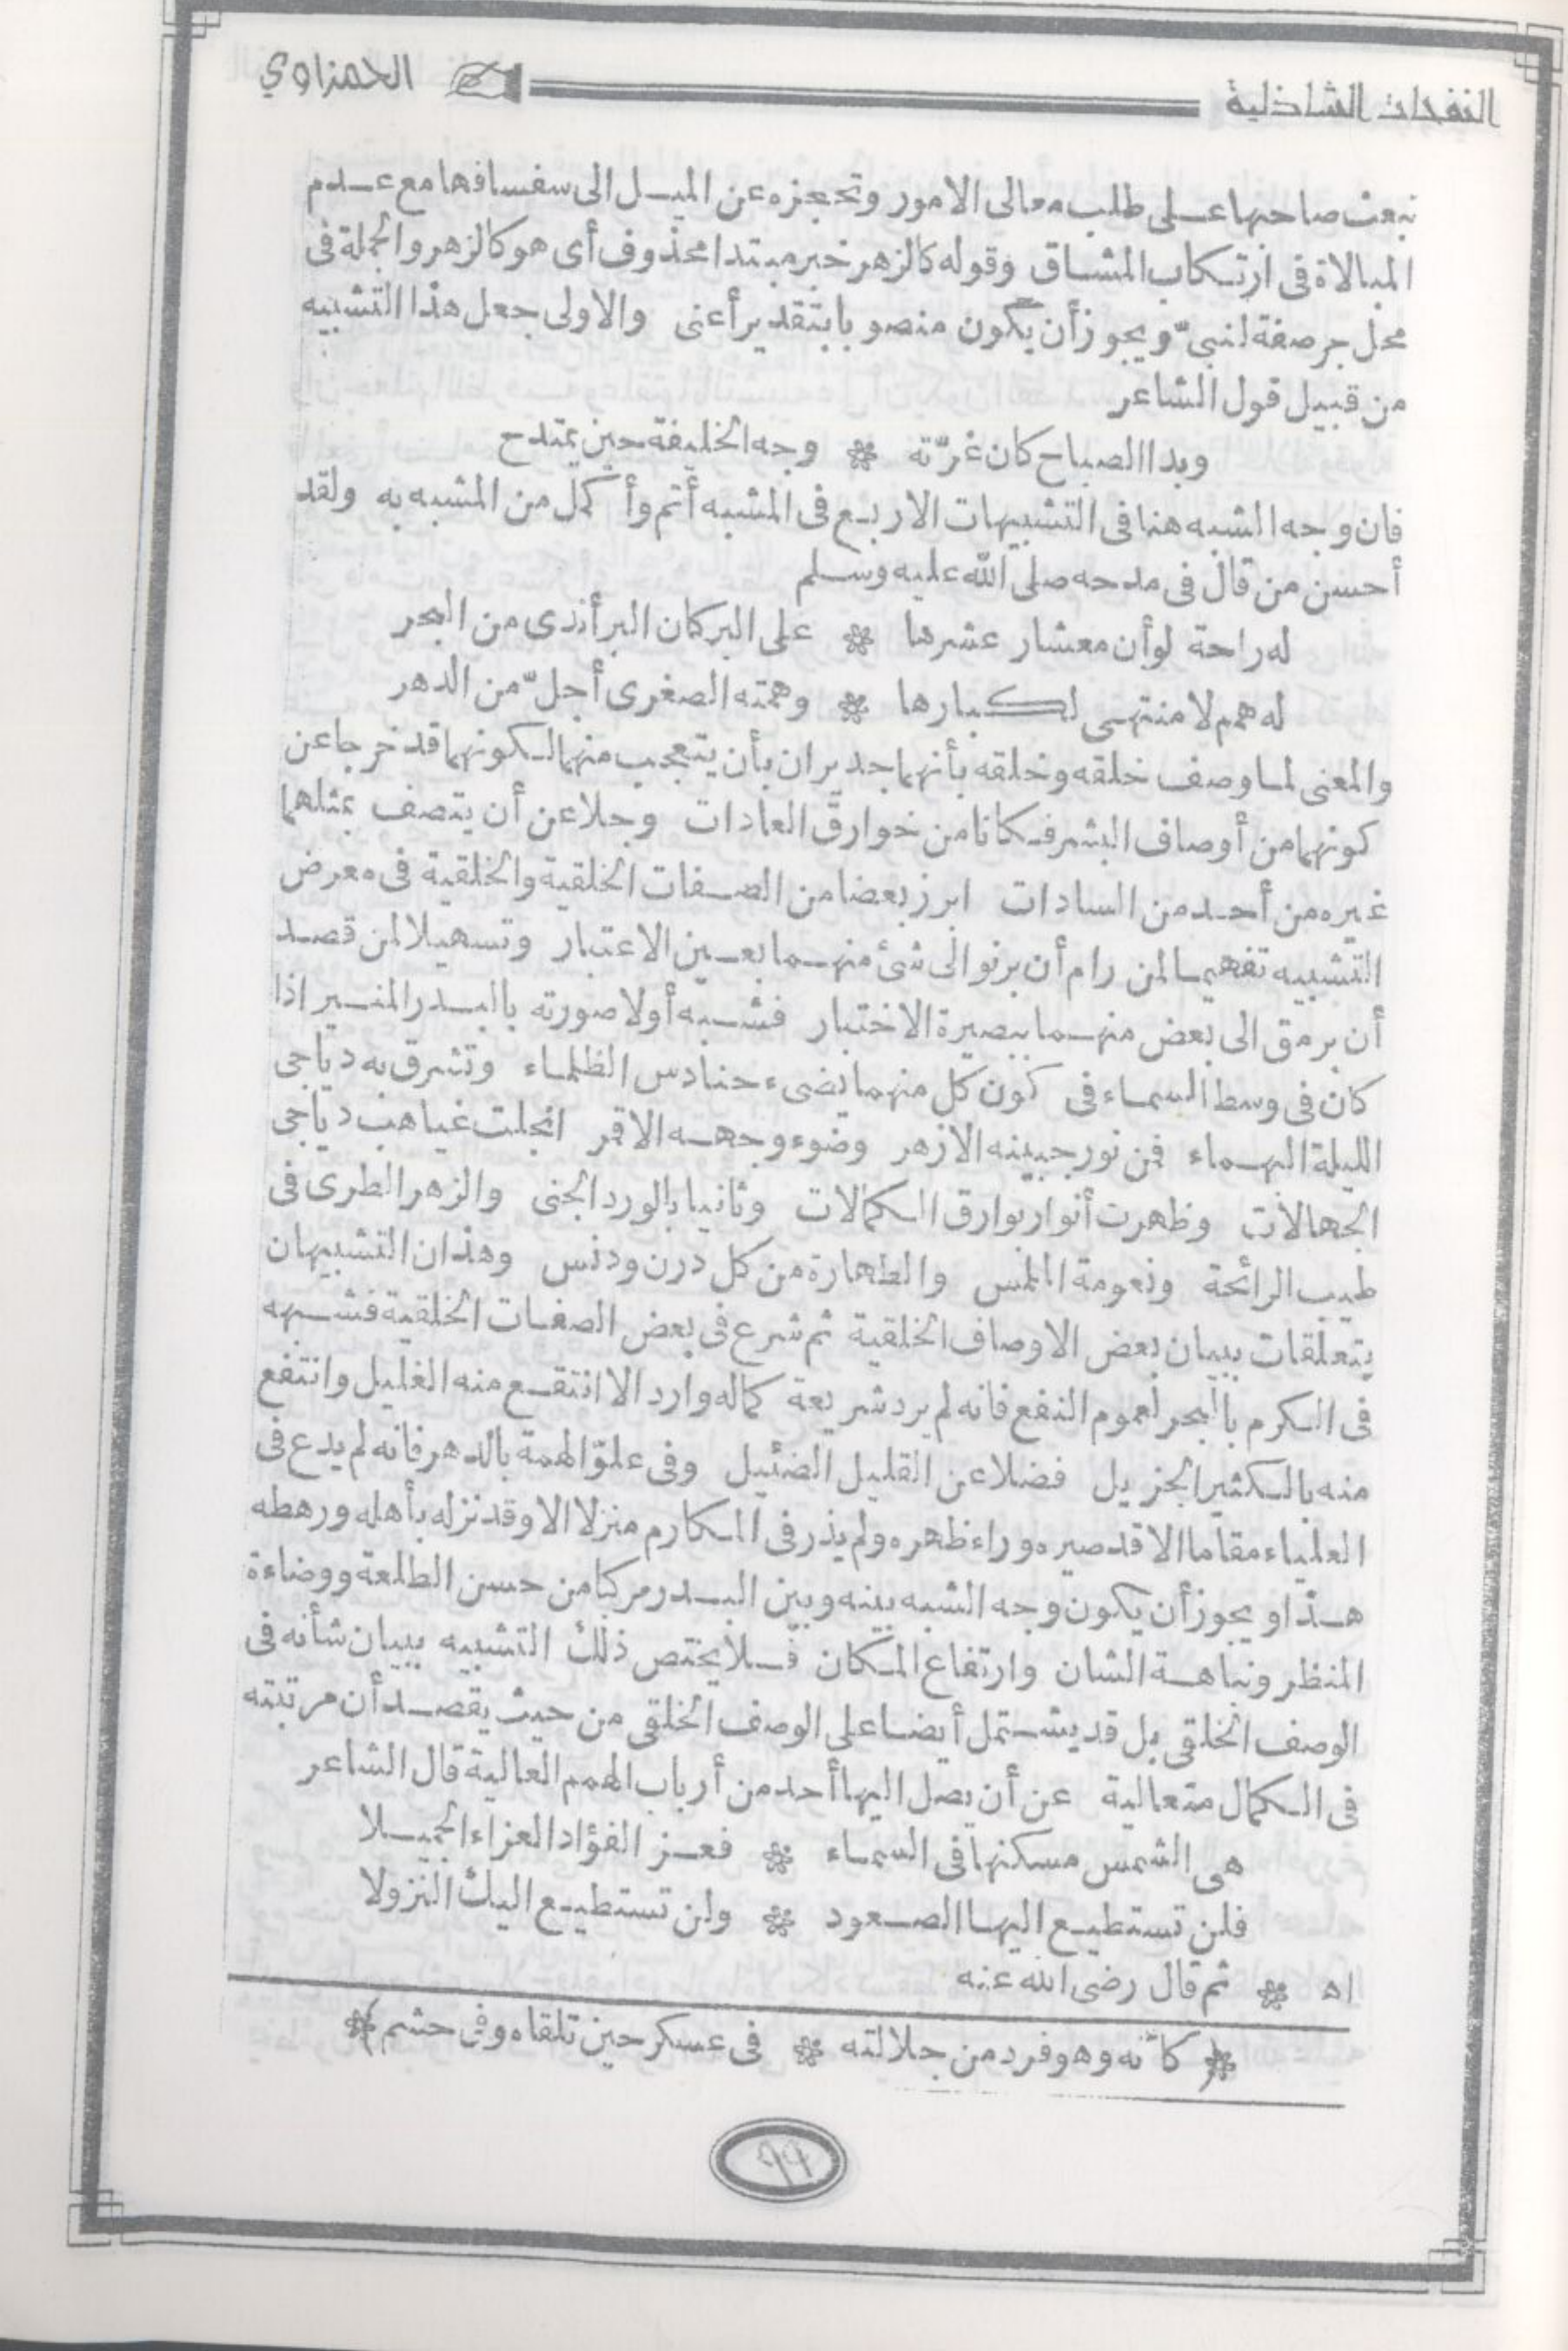 النفحات الشاذلية
الحمزاوي
تبعث صاحبها على طلب معالى الامور وتحجزه عن الميل الى سفسافها مع عدم
المبالاة فى ارتكاب المشاق وقوله كالزهر خبر مبتدا محذوف أى هو كالزهر والجملة فى
محل جر صفة لنبىّ ويجوز أن يكون منصوبا بتقدير أعنى والاولى جعل هذا التشبيه
من قبيل قول الشاعر
وبدا الصباح كان غرّته ❊ وجه الخليفة حين يمتدح
فان وجه الشبه هنا فى التشبيهات الاربع فى المشبه أتم وأكمل من المشبه به ولقد
أحسن من قال فى مدحه صلى الله عليه وسلم
له راحة لو أن معشار عشرها ❊ على البر كان البر أندى من البحر
له همم لا منتهى لكبارها ❊ وهمته الصغرى أجلّ من الدهر
والمعنى لما وصف خلقه وخلقه بأنهما جديران بأن يتعجب منهما لكونهما قد خرجا عن
كونهما من أوصاف البشر فكانا من خوارق العادات وجلا عن أن يتصف بمثلهما
غيره من أحد من السادات ابرز بعضا من الصفات الخلقية والخلقية فى معرض
التشبيه تفهيما لمن رام أن يرنو الى شئ منهما بعين الاعتبار وتسهيلا لمن قصد
أن يرمق الى بعض منهما ببصيرة الاختبار فشبه أولا صورته بالبدر المنير اذا
كان فى وسط السماء فى كون كل منهما يضىء حنادس الظلماء وتشرق به دياجى
الليلة البهماء فمن نور جبينه الازهر وضوء وجهه الاقمر انجلت غياهب دياجى
الجهالات وظهرت أنوار بوارق الكمالات وثانيا بالورد الجنى والزهر الطرى فى
طيب الرائحة ونعومة الملمس والطهارة من كل درن ودنس وهذان التشبيهان
يتعلقات ببيان بعض الاوصاف الخلقية ثم شرع فى بعض الصفات الخلقية فشبهه
فى الكرم بالبحر لعموم النفع فانه لم يرد شريعة كماله وارد الا انتقع منه الغليل وانتفع
منه بالكثير الجزيل فضلا عن القليل الضئيل وفى علوّ الهمة بالدهر فانه لم يدع فى
العلياء مقاما الا قد صيره وراء ظهره ولم يذر فى المكارم منزلا الا وقد نزله بأهله ورهطه
هذا ويجوز أن يكون وجه الشبه بينه وبين البدر مركبا من حسن الطلعة ووضاءة
المنظر ونباهة الشان وارتفاع المكان فلا يختص ذلك التشبيه ببيان شأنه فى
الوصف الخلقى بل قد يشتمل أيضا على الوصف الخلقى من حيث يقصد أن مرتبته
فى الكمال متعالية عن أن يصل اليها أحد من أرباب الهمم العالية قال الشاعر
هى الشمس مسكنها فى السماء ❊ فعز الفؤاد العزاء الجميلا
فلن تستطيع اليها الصعود ❊ ولن تستطيع اليك النزولا
اه ❊ ثم قال رضى الله عنه
❊(كأنه وهو فرد من جلالته ❊ فى عسكر حين تلقاه وفى حشم)❊